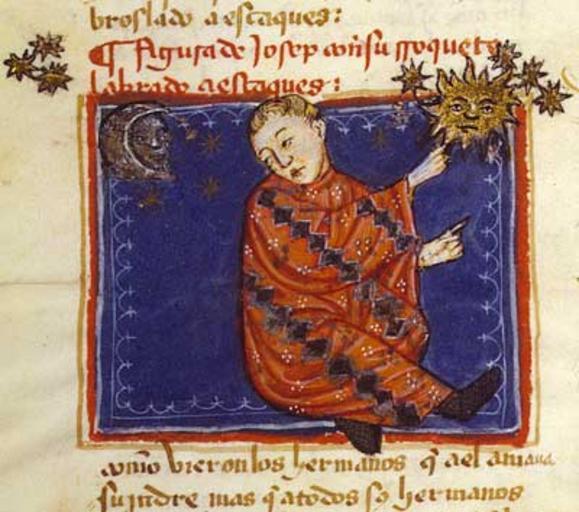 broslado a escaques:
¶ Figura de Josep con su roquete
labrado a escaques:
como vieron los hermanos q̃ a el amaua
su padre mas q̃ a todos sꝯ hermanos